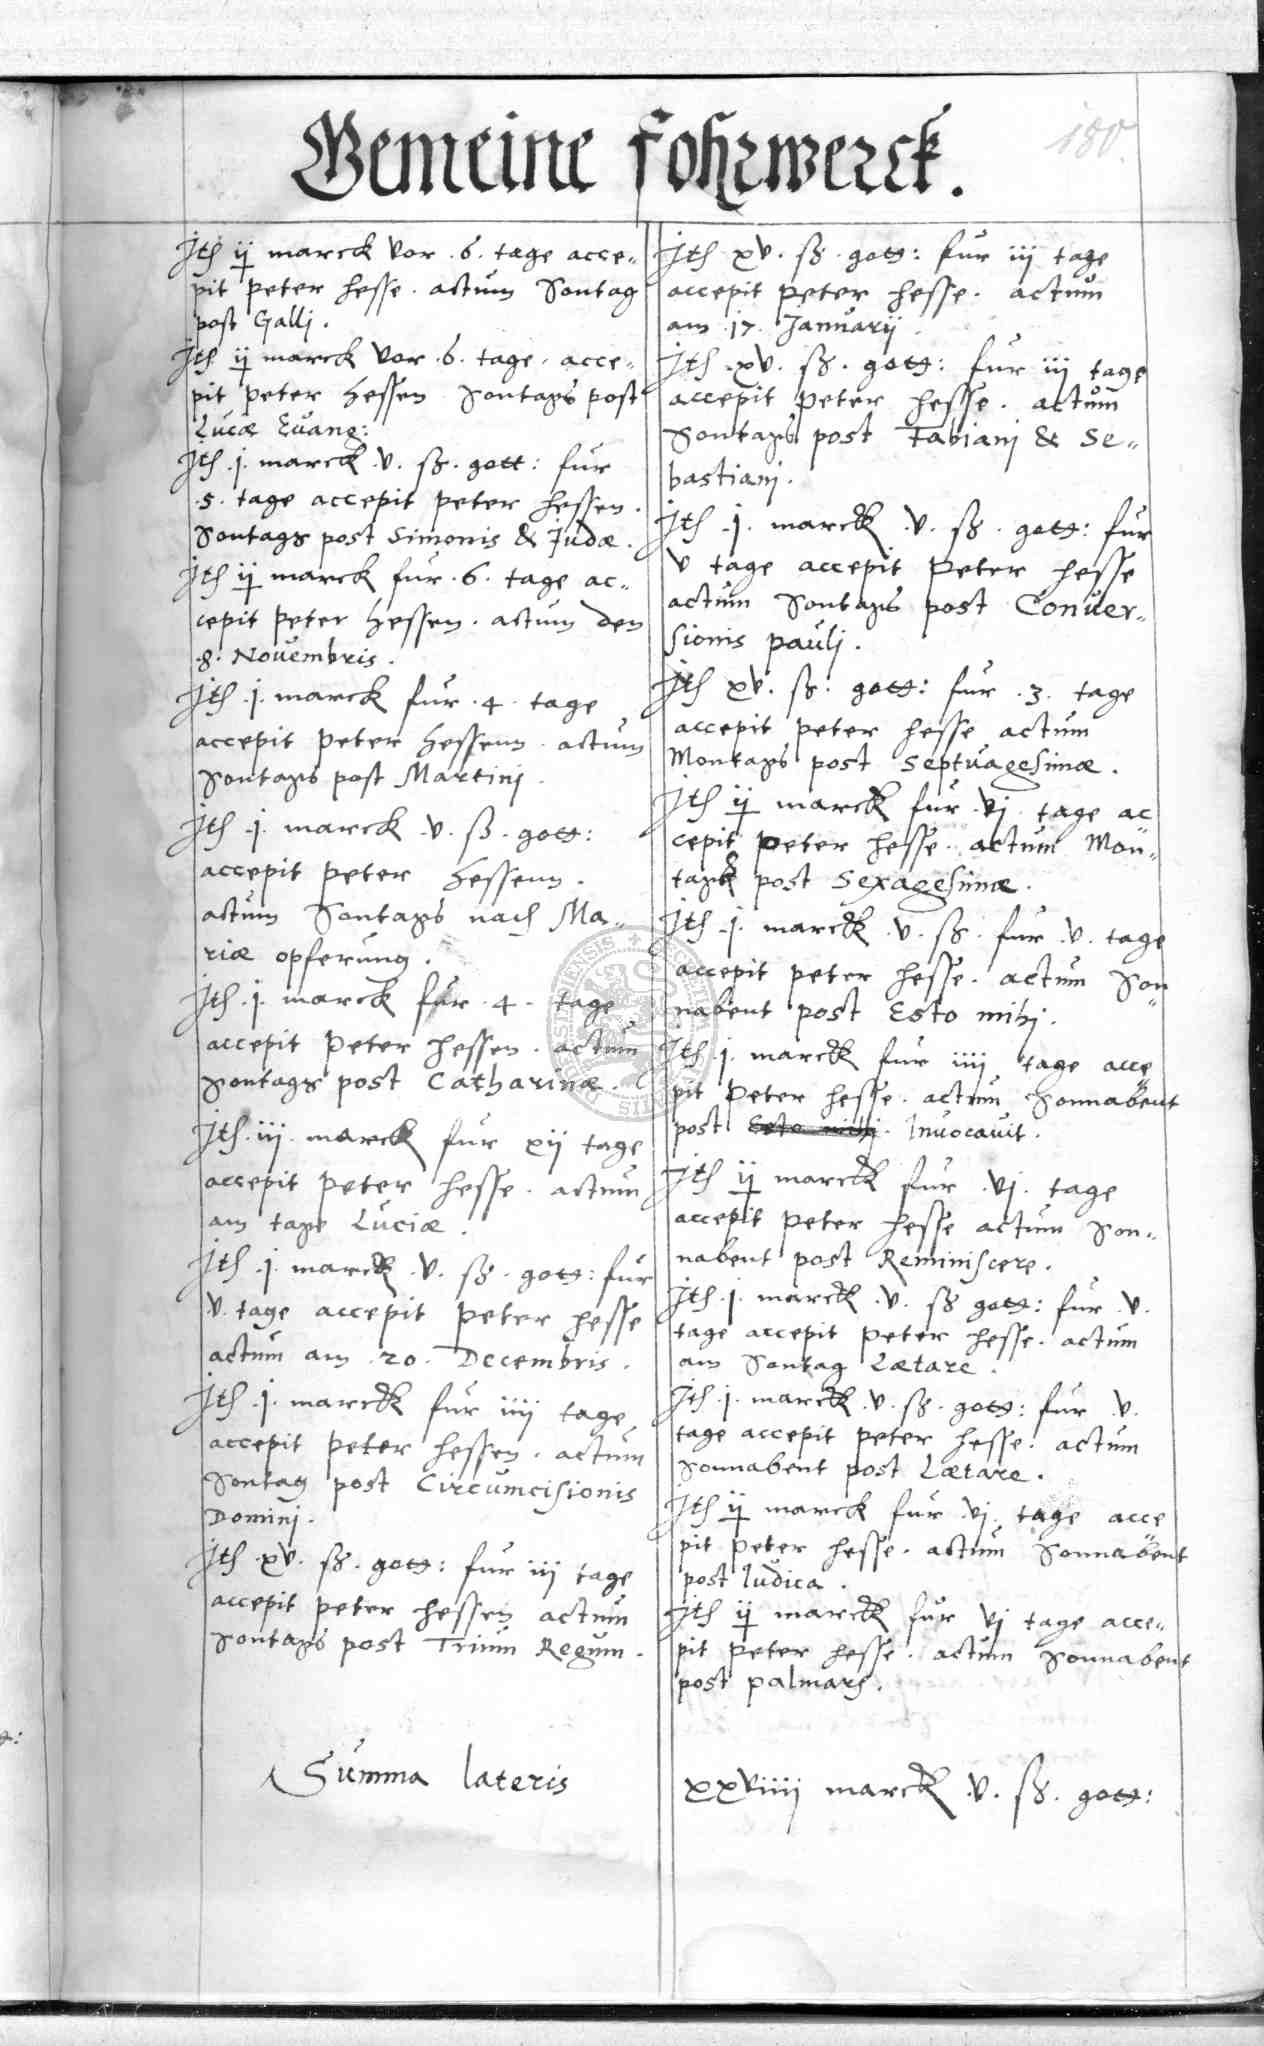 Gemeine fohrwerck.
180.
Jtē ij marck vor .6. tage acce„
pit peter hesse . actum Sontag
post Gallj .
Jtē ij marck vor .6. tage . acce„
pit peter hessen Sontags post
Lucæ Euang:
Jtē .j. marck .v. sß . gott: fur
.5. tage accepit peter hessen .
Sontags post Simonis & Judæ .
Jtē ij marck fur .6. tage ac„
cepit peter hessen . actum den
.8. Nouembris .
Jtē .j. marck fur .4. tage
accepit peter hessenn . actum
Sontags post Martinj .
Jtē .j. marck .v. ß . gott:
accepit peter hessenn .
actum Sontags nach Ma„
riæ opferung .
Jtē .j. marck fur .4. tage
accepit peter hessen . actum
Sontags post Catharinæ .
Jtē .iij. marck fur xij tage
accepit peter hesse . actum
am tage Luciæ .
Jtē .j. marck .v. sß . gott: fur
v. tage accepit peter hesse
actum am .20. Decembris .
Jtē .j. marck fur iiij tage
accepit peter hessen . actum
Sontag post Circumcisionis
Dominj .
Jtē .xv. sß . gott: fur iij tage
accepit peter hessen actum
Sontags post Trium Regum .
Jtē xv. sß . gott: fur iij tage
accepit peter hesse . actum
am .17. Januarij .
Jtē .xv. sß . gott: fur iij tage
accepit peter hesse . actum
Sontags post Fabianj & Se„
bastianj .
Jtē .j. marck .v. sß . gott: fur
v tage accepit peter hesse
actum Sontags post Conuer„
sionis paulj .
Jtē xv. sß . gott: fur .3. tage
accepit peter hesse actum
Montags post Septuagesimæ .
Jtē ij marck fur .vj. tage ac„
cepit peter hesse . actum Mon„
tags post Sexagesimæ .
Jtē .j. marck .v. sß . fur .v. tage
accepit peter hesse . actum Son„
nabent post Esto mihj .
Jtē .j. marck fur iiij tage acce„
pit peter hesse . actum Sonnabent
post Esto mihj . Inuocauit .
Jtē ij marck fur .vj. tage
accepit peter hesse actum Son„
nabent post Reminiscere .
Jtē .j. marck .v. sß gott: fur .v.
tage accepit peter hesse . actum
am Sontag Lætare .
Jtē .j. marck .v. sß . gott: fur .v.
tage accepit peter hesse . actum
Sonnabent post Lætare .
Jtē ij marck fur .vj. tage acce„
pit peter hesse . actum Sonnabent
post Iudica .
Jtē ij marck fur vj tage acce„
pit peter hesse . actum Sonnabent
post palmarū .
Summa lateris
xxviiij marck .v. sß . gott: